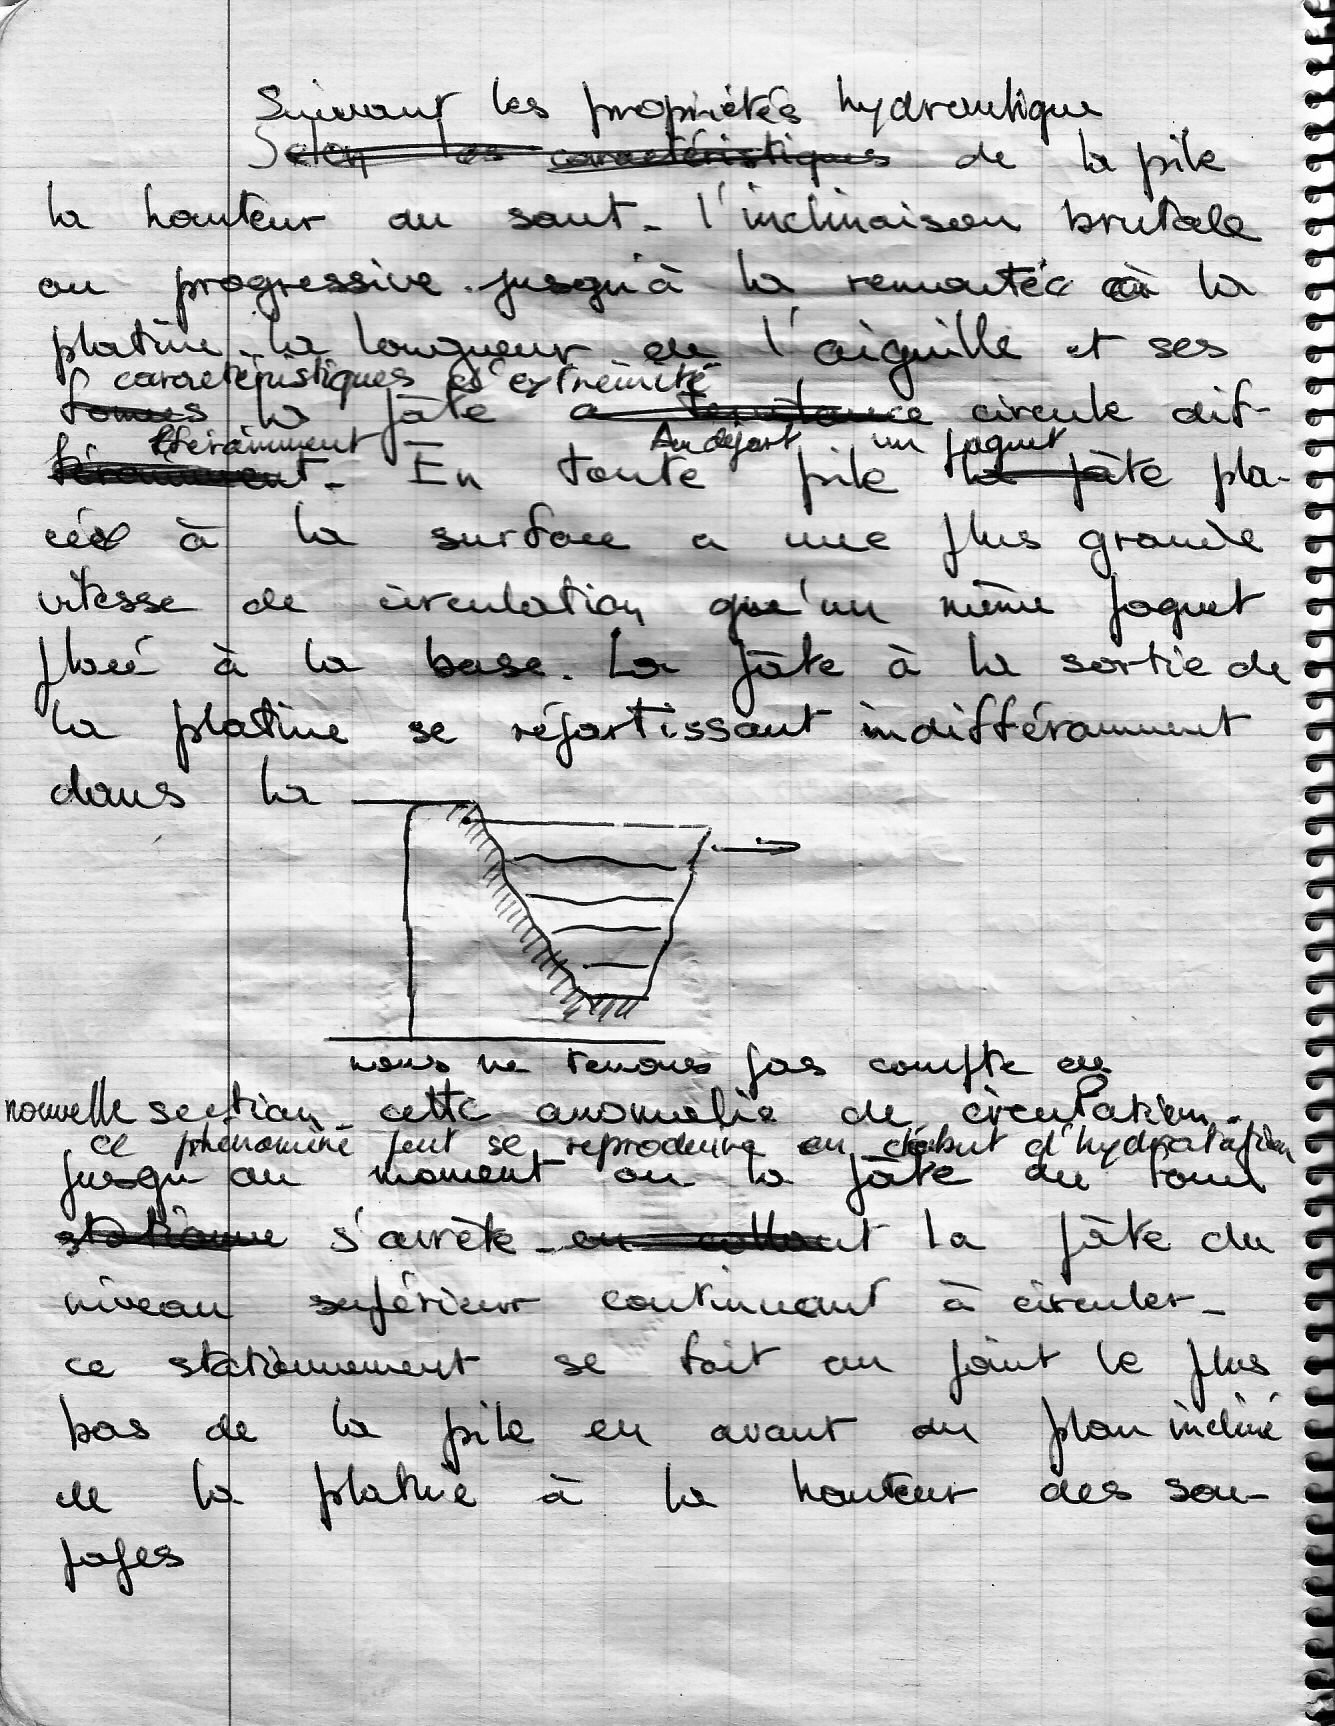 Suivant les propriétés hydraulique
Selon les caractéristiques de la pile
la hauteur du saut. l'inclinaison brutale
ou progressive jusqu'à la remontée à la
platine. la longueur de l'aiguille et ses
caractéristiques d'extrémité
formes la pâte a tendance circule dif-
fféramment Au départ un paquet
féramment. En toute pile la pâte pla-
cée à la surface a une plus grande
vitesse de circulation qu'un même paquet
placé à la base. La pâte à la sortie de
la platine se répartissant indifféramment
dans la
nous ne tenons pas compte de
nouvelle section cette anomalie de circulation.
ce phénomène peut se reproduire en début d'hydratation
jusqu'au moment ou la pâte du fond
stationne s'arrète en collant la pâte du
niveau supérieur continuant à circuler.
ce stationnement se fait au point le plus
bas de la pile en avant du plan incliné
de la platine à la hauteur des sou-
papes